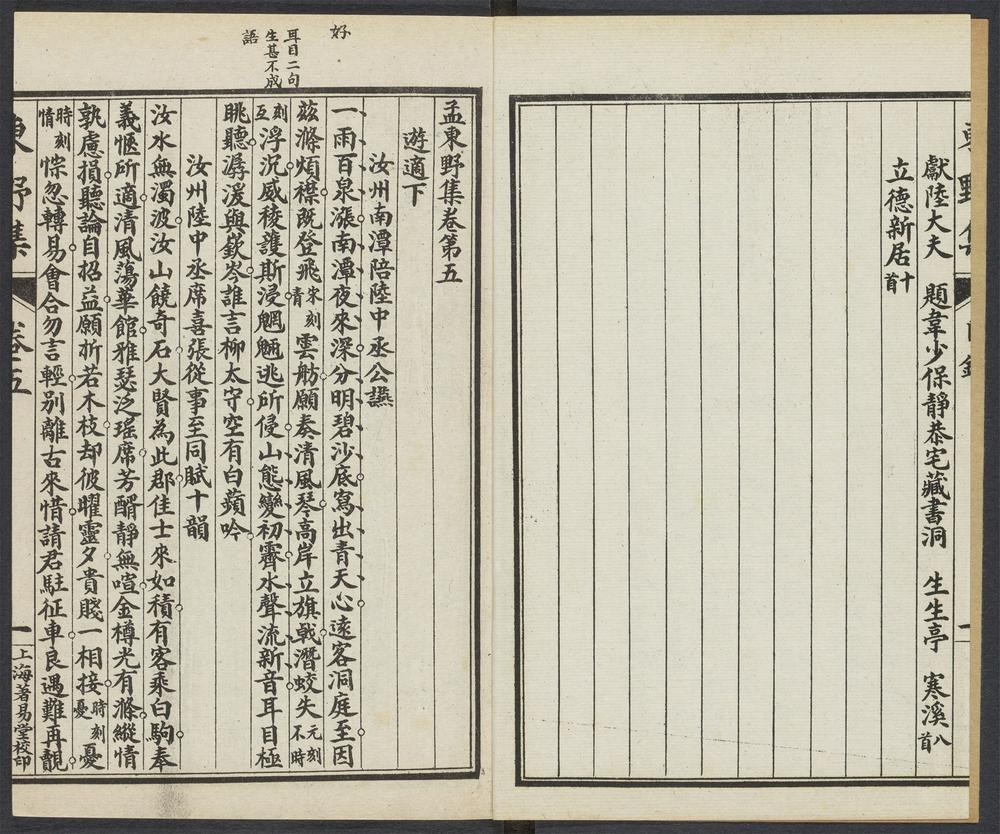 獻陸大夫 題韋少保靜恭宅藏書洞 生生亭 寒溪八首
立德新居十首
好
耳目二句
生甚不成
語
孟東野集卷第五
遊適下
汝州南潭陪陸中丞公讌
一雨百泉漲南潭夜來深分明碧沙底寫出青天心遠客洞庭至因
茲滌煩襟既登飛宋刻青雲舫願奏清風琴高岸立旗戟潛蛟失元刻不時
刻互浮沉威稜護斯浸魍魎逃所侵山態變初霽水聲流新音耳目極
眺聽潺湲與嶔岑誰言柳太守空有白蘋吟
汝州陸中丞席喜張從事至同賦十韻
汝水無濁波汝山饒奇石大賢為此郡佳士來如積有客乘白駒奉
義愜所適清風蕩華館雅瑟泛瑤席芳醑靜無喧金樽光有滌縱情
孰慮損聽論自招益願折若木枝却彼曜靈夕貴賤一相接時刻憂憂
時刻情悰忽轉易會合勿言輕別離古來惜請君駐征車良遇難再覿
東野集
卷五
一
上海著易堂校印